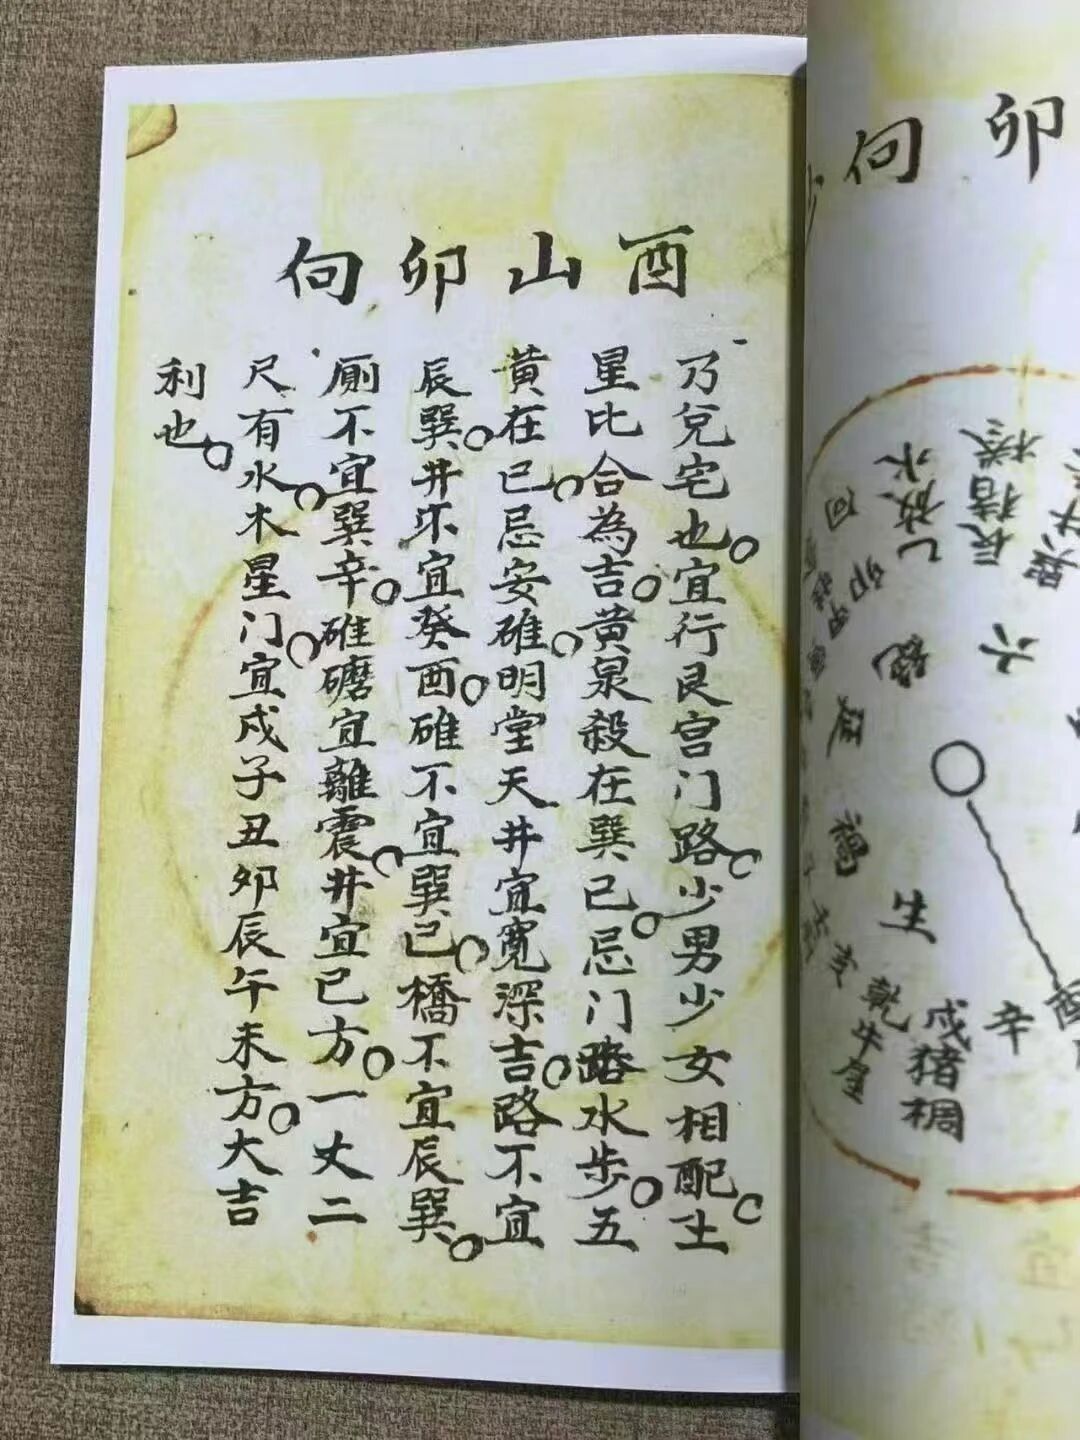 酉山卯向
乃兌宅也。宜行艮宫门路。少男少女相配。土
星比合為吉。黄泉殺在巽巳。忌门路水步。五
黄在巳。忌安碓。明堂天井宜寬深吉。路不宜
辰巽。井不宜癸酉。碓不宜巽巳。橋不宜辰巽。
厠不宜巽辛。碓磨宜離震。井宜巳方。一丈二
尺有水。木星门。宜戍子丑卯辰午未方。大吉
利也。
卯向
乙放水
六
禍
生
乾牛屋
亥
戍猪椆
辛
酉